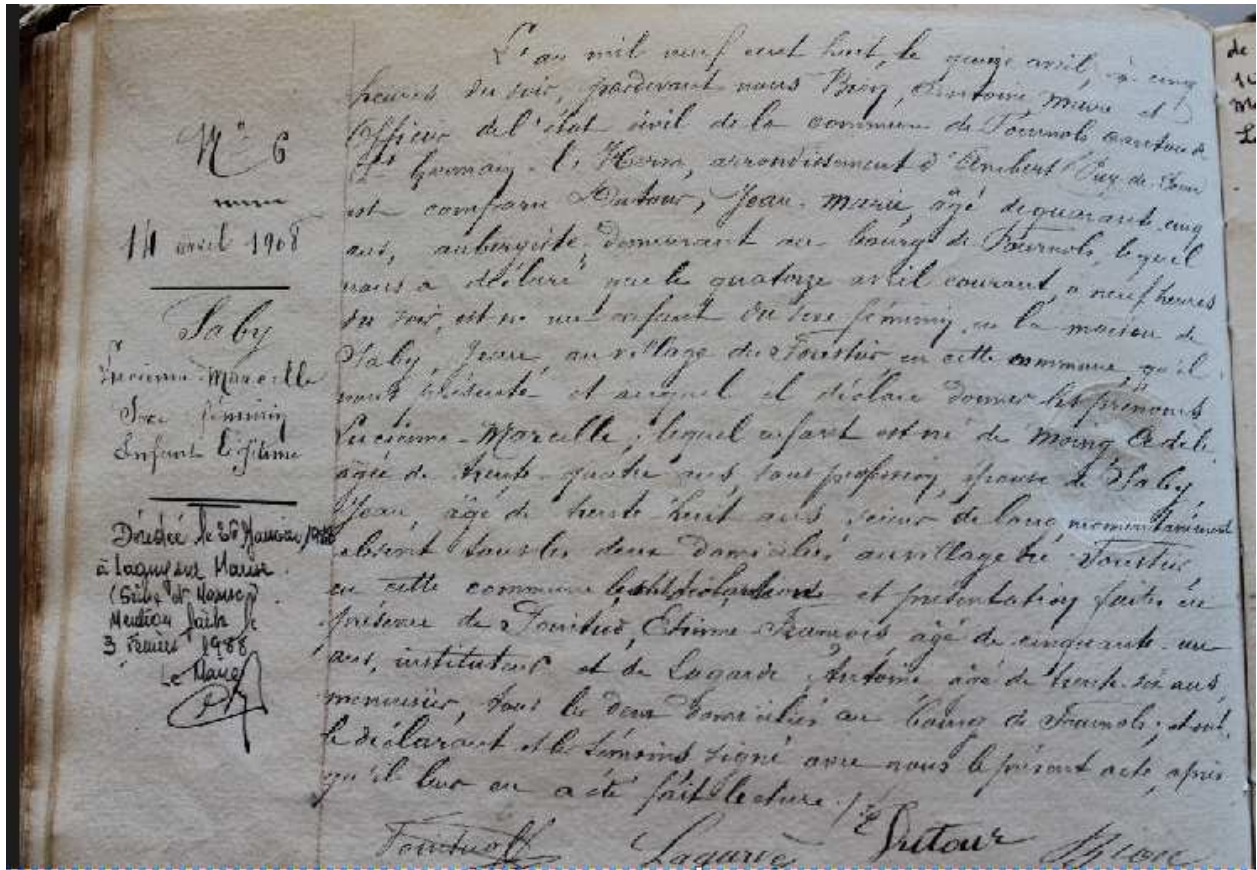 N° 6
14 avril 1908
Saby
Lucienne-Marcelle
Sexe féminin
Enfant légitime
Décédée le 26 Janvier 1988
à Lagny sur Marne
(Seine et Marne)
Mention faite le
3 Février 1988
Le Maire
L'an mil neuf cent huit, le quinze avril, à cinq
heures du soir, pardevant nous Antoine, Maire et
Officier de l'état civil de la commune de Fournols canton de
St Germain-l'Herm, arrondissement d'Ambert Puy-de-Dôme
est comparu Dutour, Jean-Marie, âgé de quarante cinq
ans, aubergiste, demeurant au bourg de Fournols, lequel
nous a déclaré que le quatorze avril courant, à neuf heures
du soir, est né un enfant du sexe féminin, en la maison de
Saby, Jean, au village du en cette commune, qu'il
nous présente et auquel il déclare donner les prénoms
Lucienne-Marcelle, lequel enfant est né de Moing Adèle
âgée de trente-quatre ans, sans profession, épouse de Saby,
Jean, âgé de trente huit ans, scieur de long momentanément
absent tous les deux domiciliés au village du
en cette commune et présentation faites en
présence de Etienne-François âgé de cinquante-un
ans, instituteur et de Lagarde, Antoine âgé de trente six ans,
menuisier, tous les deux domiciliés au bourg de Fournols; et ont,
le déclarant et les témoins signé avec nous le présent acte, après
qu'il leur en a été fait lecture./.
Lagarde Dutour
de